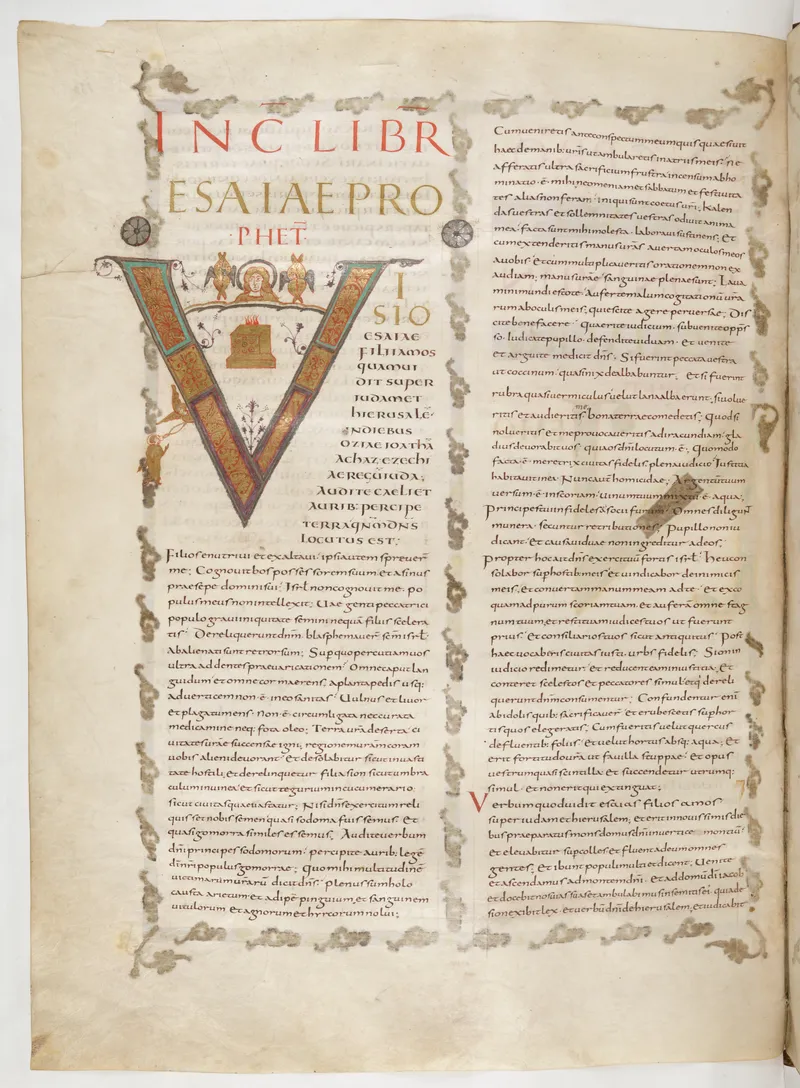 INC LIBR
ESAIAE PRO
PHET
VISIO
ESAIAE
FILII AMOS
QUAM VI
DIT SUPER
IUDAM ET
HIERUSALĒ
IN DIEBUS
OZIAE IOATHĀ
ACHAZ EZECHI
AE REGŪ IUDA;
AUDITE CAELI ET
AURIB; PERCIPE
TERRA QNM DNS
LOCUTUS EST;
Filios enutrivi et exaltavi ipsi autem spreuer
me; Cognovit bos possessorem suum et asinus
praesepe domini sui; Isrl non cognovit me; po
pulus meus non intellexit; Uae genti peccatrici
populo gravi iniquitate semini nequā filiis scelera
tis; Dereliquerunt dnm blasphemauer scm isrl
Abalienati sunt retrorsum; Sup quo percutiam uos
ultra addentes praevaricationem; Omne caput lan
guidum et omne cor maerens; a planta pedis usq;
ad verticem non ē in eo sanitas; Uulnus et liuor
et plaga tumens non ē circumligata nec curata
medicamine neq; fota oleo; Terra ura deserta ci
uitates urae succensae igni; regionem uram coram
uobis alieni devorant et desolabitur sicut in uasti
tate hostili; et derelinquetur filia sion sicut umbra
culum in uinea et sicut tegurium in cucumerario;
sicut ciuitas quae uastatur; Nisi dns exercituum reli
quisset nobis semen quasi sodoma fuissemus et
quasi gomorra similes essemus; Audite uerbum
dni principes sodomorum; percipite aurib; legē
di nri populus gomorrae; quo mihi multitudinē
uictimarum urarū dicit dns; plenus sum holo
causta arietum et adipē pinguium et sanguinem
uitulorum et agnorum et hyrcorum nolui;
Cum ueniretis ante conspectum meum quis quaesiuit
haec de manib; uris ut ambularetis in atriis meis; ne
afferatis ultra sacrificium frustra incensum abho
minatio ē mihi neomeniam et sabbatum et festiuita
tes alias non feram iniqui sunt coetus uri; kalen
das uestras et sollemnitates uestras odiuit anima
mea; facta sunt mihi molesta laboraui sustinens; Et
cum extenderitis manus urās auertam oculos meos
a uobis et cum multiplicaueritis orationem non ex
audiam; manus urae sanguine plenae sunt; Laua
mini mundi estote auferte malum cogitationū urā
rum ab oculis meis; quiescite agere peruersae; Dis
cite bene facere quaerite iudicium subuenite opps
so iudicate pupillo defendite uiduam et uenite
et arguite me dicit dns; Si fuerint peccata uestra
ut coccinum quasi nix dealbabuntur; et si fuerint
rubra quasi uermiculus uelut lana alba erunt; si uolue
ritis et audieritis me bona terrae comedetis; Quod si
nolueritis et me prouocaueritis ad iracundiam gla
dius deuorabit uos quia os dni locutum ē; Quomodo
facta ē meretrix ciuitas fidelis plena iudicio iustitia
habitauit in ea Nunc aut homicidae; Argentū tuum
uersum ē in scoriam uinum tuum mixtū ē aqua;
Principes tui infideles socii furum Omnes diligunt
munera secuntur retributiones Pupillo non iu
dicant et causa uiduae non ingreditur ad eos;
Propter hoc ait dns exercituū fortis isrl heu con
solabor sup hostib; meis et uindicabor de inimicis
meis; et conuertam manum meam ad te et exco
quam ad purum scoriam tuam et auferā omne stag
num tuum et restituam iudices tuos ut fuerunt
prius et consiliarios tuos sicut antiquitus Post
haec uocaberis ciuitas iusti urbs fidelis; Sion in
iudicio redimetur et reducent eam in iustitia; Et
conteret scelestos et peccatores simul et q dereli
querunt dnm consumentur; Confundentur eni
ab idolis quib; sacrificauer et erubescetis sup hor
tis quos elegeratis; Cum fueritis uelut quercus
defluentib; foliis et uelut hortus absq; aqua; Et
erit fortitudo urā ut fauilla stuppae et opus
uestrum quasi scintilla et succendetur utrumq;
simul et non erit qui extinguat;
Verbum quod uidit esaias filius amos
super iudam et hierusalem; et erit in nouissimis die
bus praeparatus mons domus dni in uertice montiū
et eleuabitur sup colles et fluent ad eum omnes
gentes; Et ibunt populi multi et dicent; Uenite
et ascendamus ad montem dni et ad domū di iacob
et docebit nos uias suas et ambulabimus in semitis ei quia de
sion exibit lex et uerbū dni de hierusalem et iudicabit